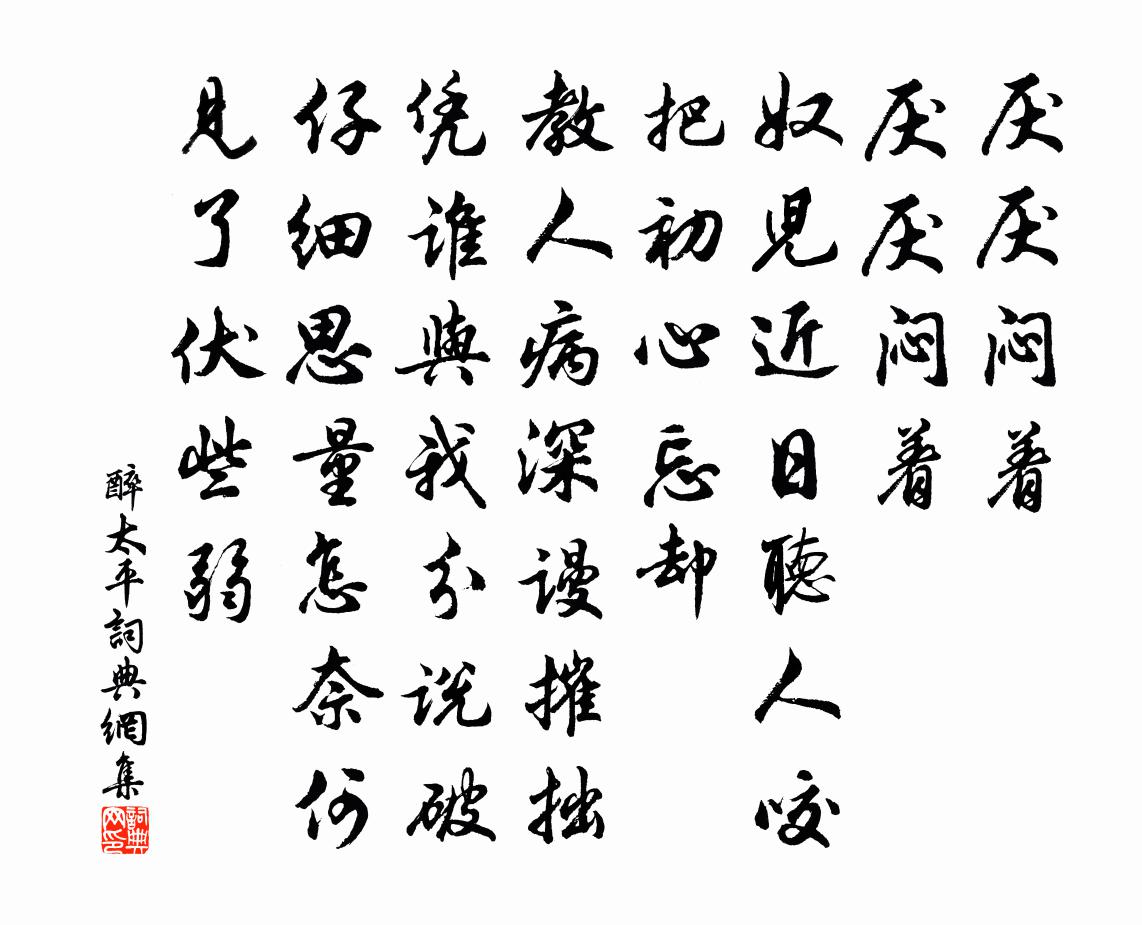 厌厌闷着
厌厌闷着
奴兒近日聽人咬
把初心忘却
教人病深谩摧拙
凭谁與我分说破
仔细思量怎奈何
見了伏些弱
醉太平詞典網集
詞典网印